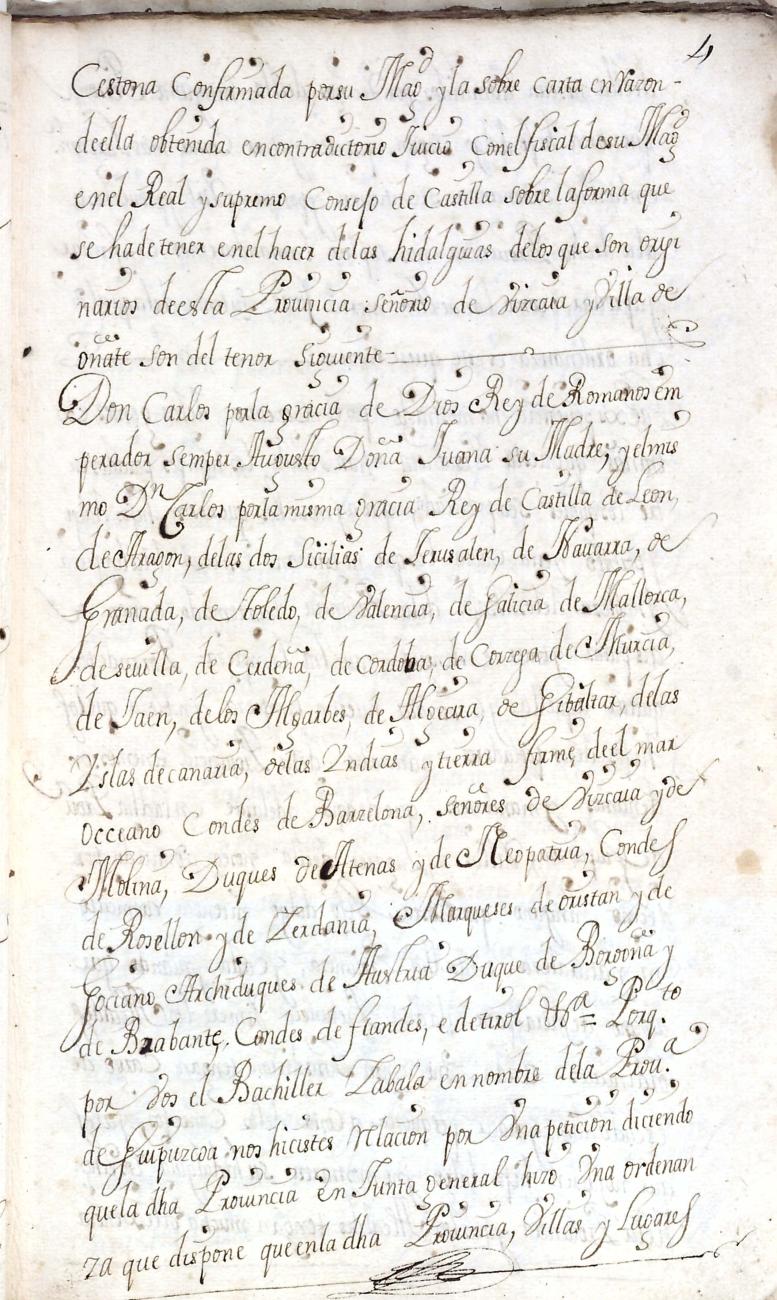 4
Cestona Confirmada por su Magd. y la sobre carta en Razon-
de ella obtenida en contradictorio Juicio con el fiscal de su Magd
en el Real y supremo Consejo de Castilla sobre la forma que
se ha de tener en el hacer de las hidalguias de los que son origi
narios de esta Prouincia señorio de Vizcaia y Villa de
oñate son del tenor siguiente
Don Carlos por la gracia de Dios Rey de Romanos Em
perador semper Augusto Doña Juana su Madre, y el mis
mo Dn Carlos por la misma gracia Rey de Castilla de Leon,
de Aragon, de las dos Sicilias de Jerusalen, de Nauarra, de
Granada, de Toledo, de Valencia, de Galicia de Mallorca,
de seuilla, de Cerdeña, de cordoba, de Correga de Murcia,
de Jaen, de los Algarbes, de Algecira, de Gibaltar, de las
Yslas de canaria, de las Yndias y tierra firme, de el mar
occeano Condes de Barzelona, señores de Vizcaia y de
Molina, Duques de Atenas y de Neopatria, Condes
de Rosellon y de Zerdania, Marqueses de oristan y de
Gociano Archiduques de Austria Duque de Borgoña y
de Brabante, Condes de flandes, e de tirol &a = Porq.to
por Vos el Bachiller Zabala en nombre de la Proua.
de Guipuzcoa nos hicistes Relacion por Vna peticion diciendo
que la dha Prouincia en Junta general hizo Vna ordenan
za que dispone que en la dha Prouincia, Villas y Lugares